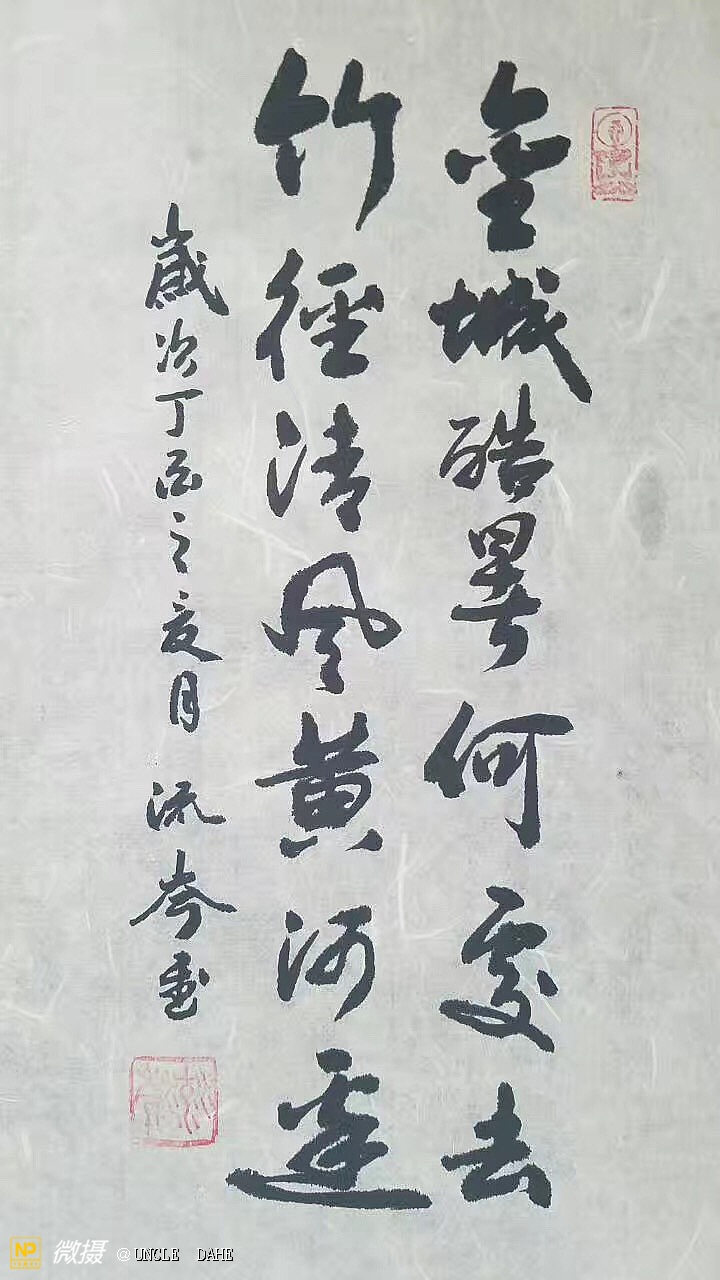 金城酷暑何處去
竹徑清風黄河邊
歲次丁酉之夏月 流岑書
NP 微摄 @UNCLE DAHE